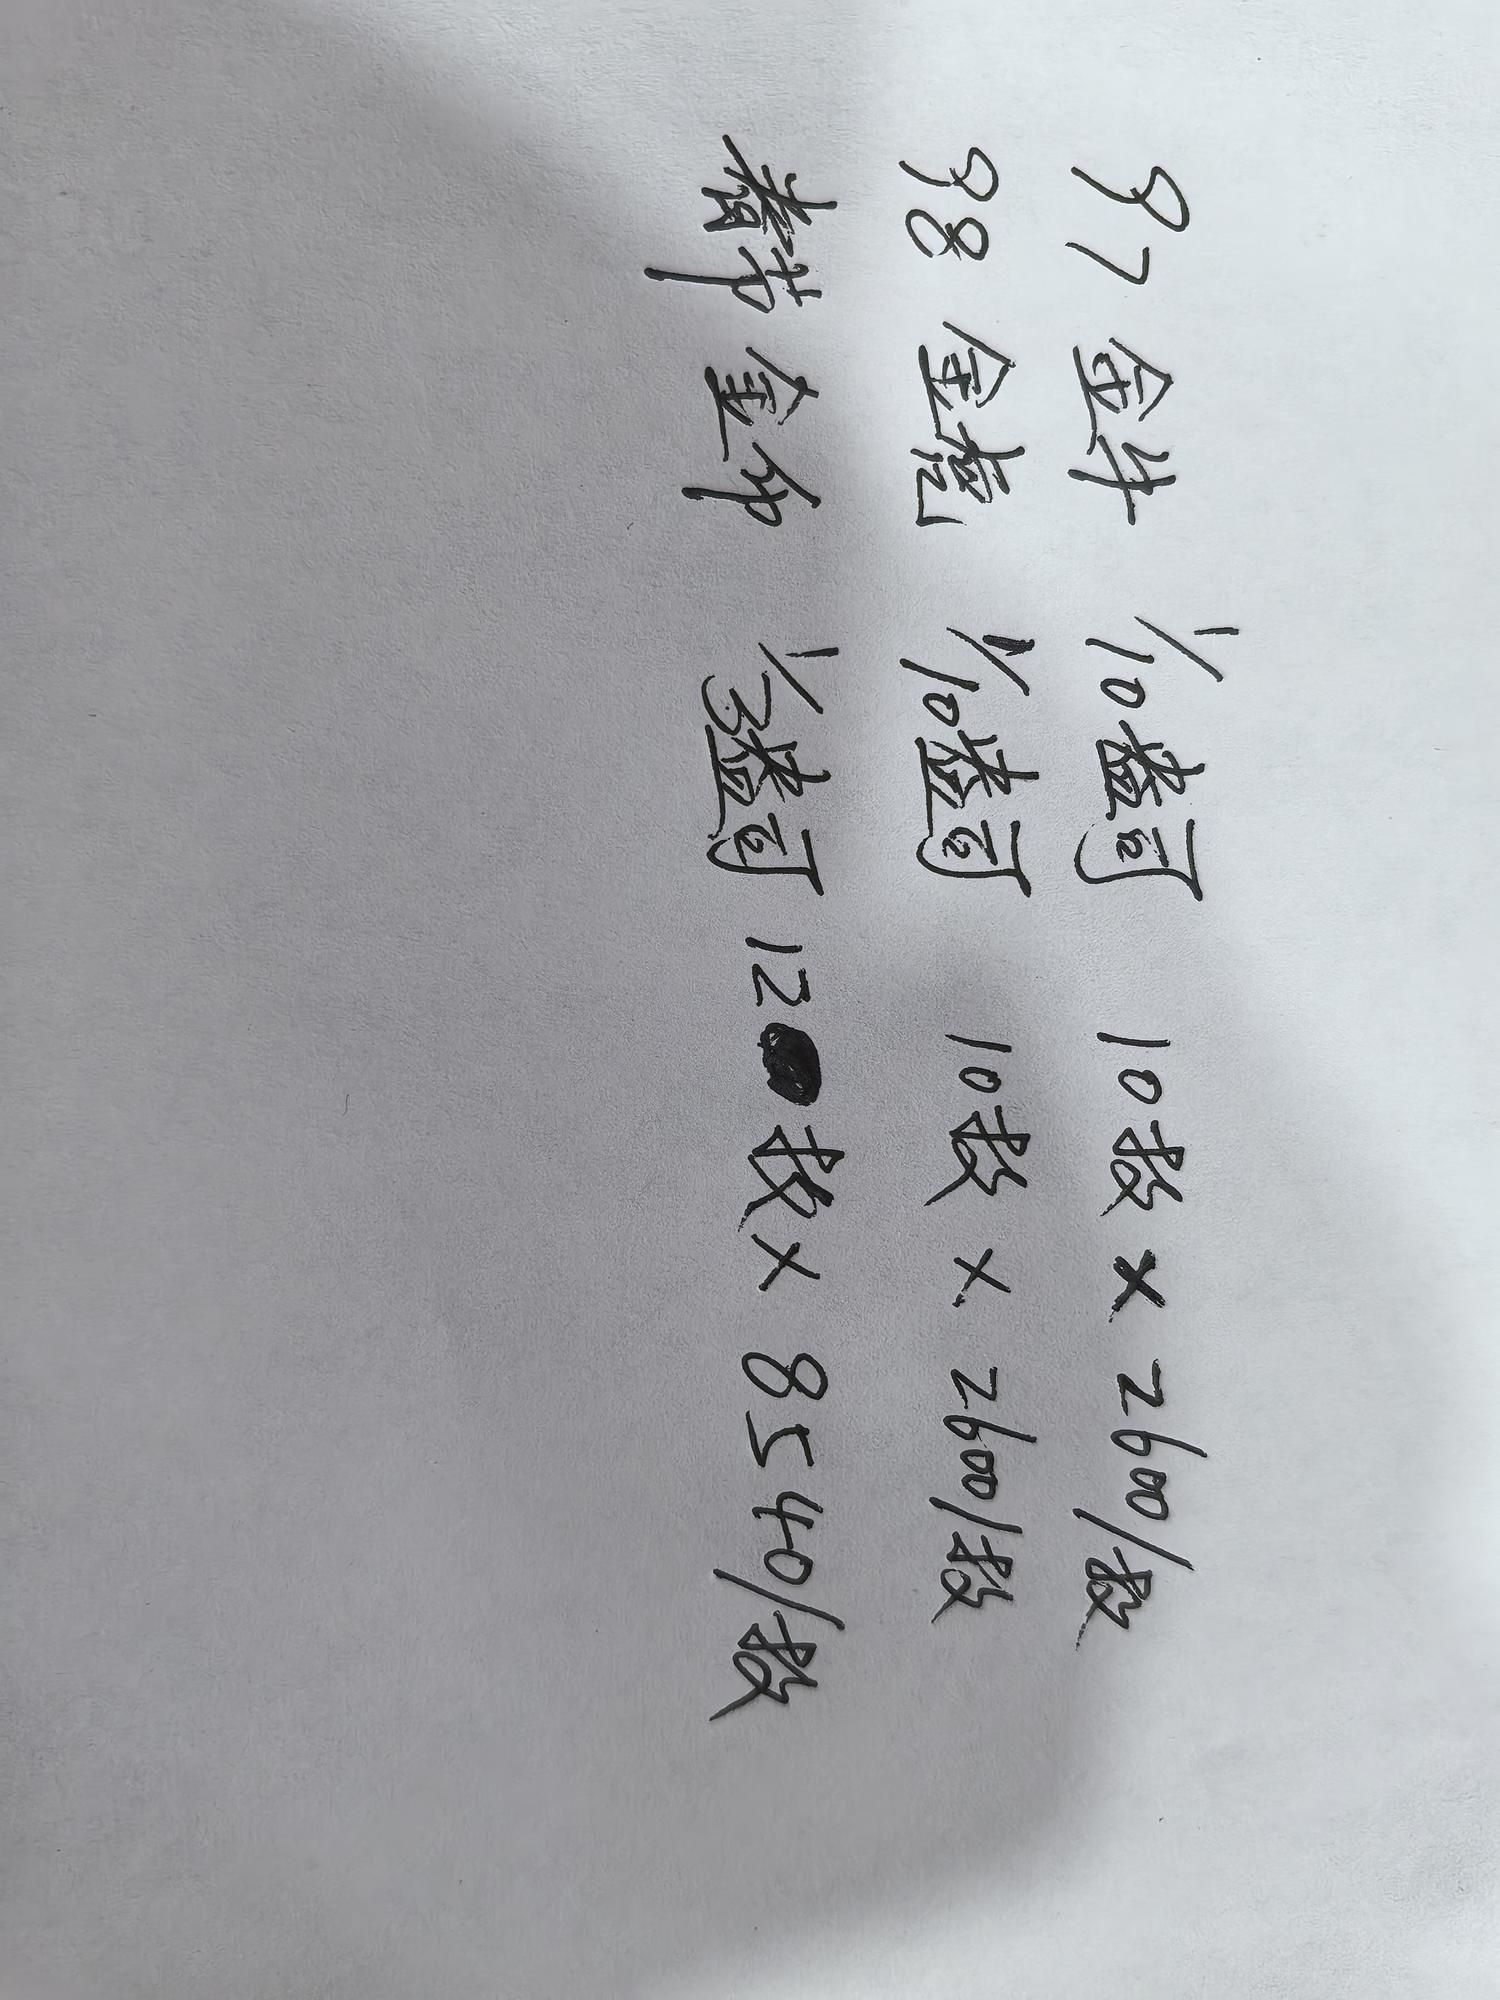 97 金牛 1/10盎司 10枚 × 2600/枚
98 金虎 1/10盎司 10枚 × 2600/枚
春节金币 1/3盎司 12枚 × 8540/枚